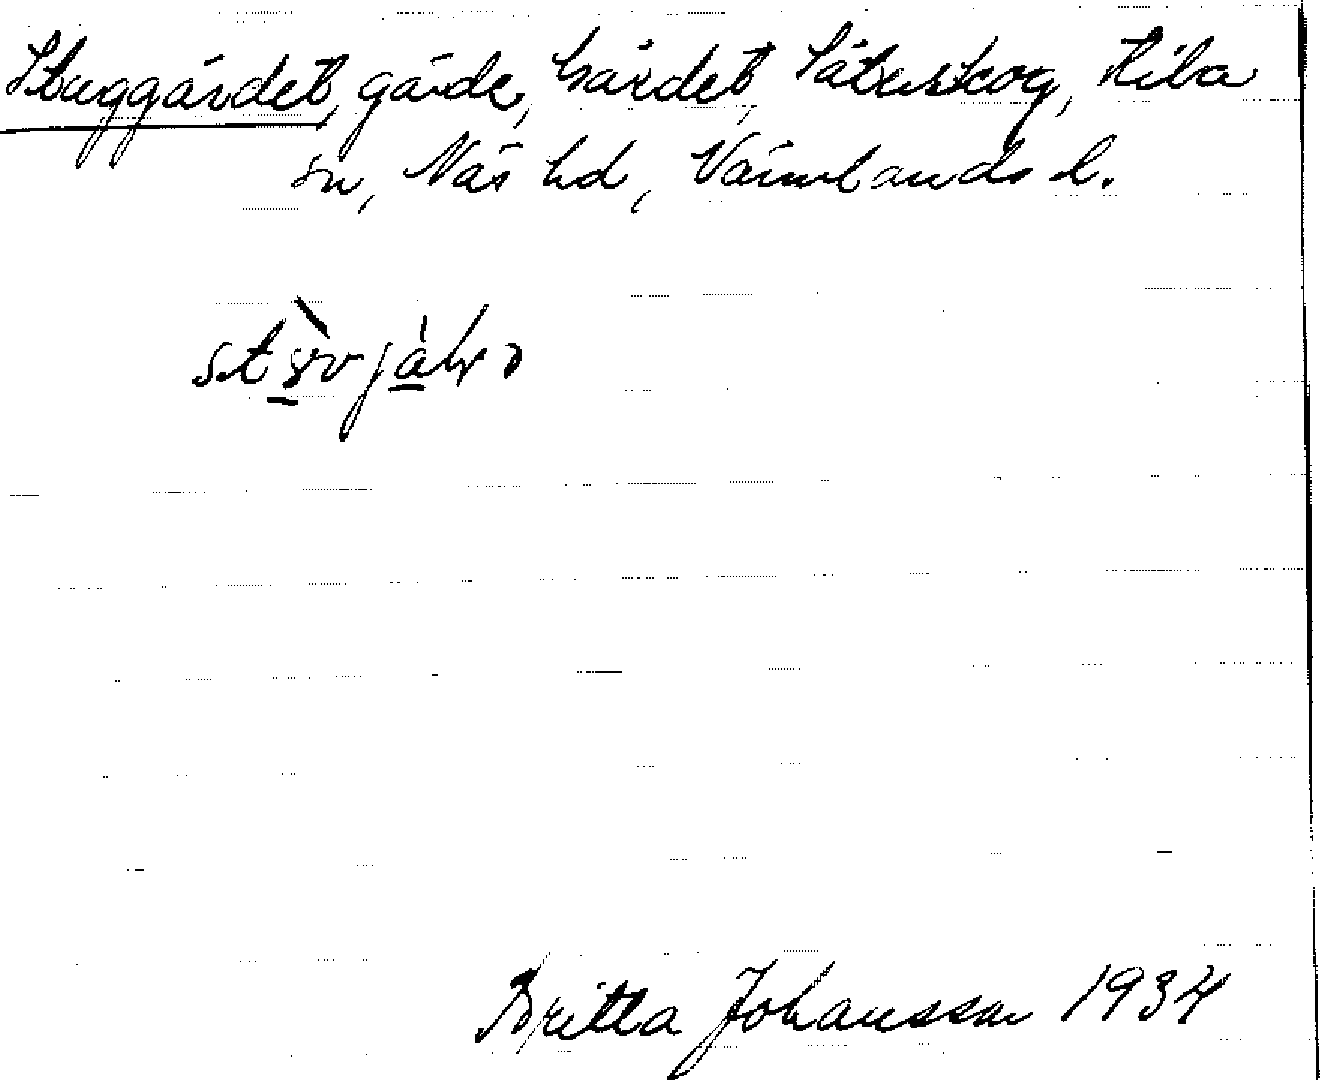 Stuggärdet, gärde, Gärdet, Säterskog, Kila
sn, Näs hd, Värmlands l.
Britta Johansson 1934